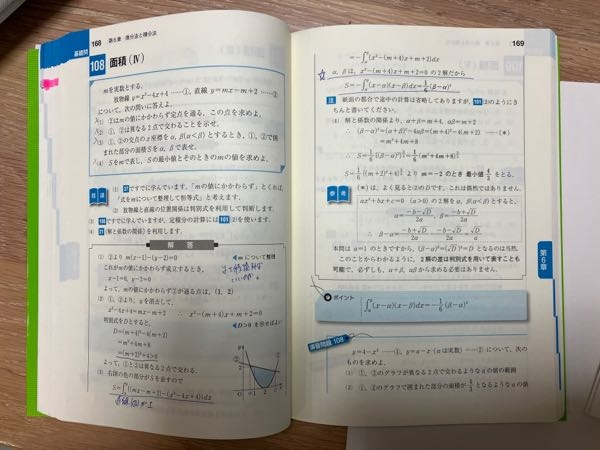 168 第6章 微分法と積分法
基礎問
108 面積(Ⅳ)
mを実数とする.
放物線 y=x²-4x+4 ……①, 直線 y=mx-m+2 ……②
について, 次の問いに答えよ.
(1) ②はmの値にかかわらず定点を通る. この点を求めよ.
(2) ①, ②は異なる2点で交わることを示せ.
(3) ①, ②の交点のx座標をα, β(α<β)とするとき, ①, ②で囲
まれた部分の面積Sをα, βで表せ.
(4) Sをmで表し, Sの最小値とそのときのmの値を求めよ.
精講
(1) 37ですでに学んでいます. 「mの値にかかわらず」とくれば,
「式をmについて整理して恒等式」と考えます.
(2) 放物線と直線の位置関係は判別式を利用して判断します.
(3) ですでに学んでいますが, 定積分の計算には101(2)を使います.
(4) 21(解と係数の関係)を利用します.
解答
(1) ②より m(x-1)-(y-2)=0
◀mについて整理
これがmの値にかかわらず成立するとき,
x-1=0, y-2=0
よって, mの値にかかわらず②が通る点は, (1, 2)
(2) ①, ②より, yを消去して,
x²-4x+4=mx-m+2 ∴ x²-(m+4)x+m+2=0
判別式をDとすると,
◀D>0 を示せばよい
D=(m+4)²-4(m+2)
=m²+4m+8
=(m+2)²+4>0
よって, ①と②は異なる2点で交わる.
(3) 右図の色の部分がSを表すので
S=∫{(mx-m+2)-(x²-4x+4)}dx
169
=-∫{x²-(m+4)x+m+2}dx
α, βは, x²-(m+4)x+m+2=0 の2解だから
S=-∫(x-α)(x-β)dx=1/6(β-α)³
注 紙面の都合で途中の計算は省略してありますが, 101(2)のようにき
ちんと書いてください.
(4) 解と係数の関係より, α+β=m+4, αβ=m+2
∴ (β-α)²=(α+β)²-4αβ=(m+4)²-4(m+2) ……(*)
=m²+4m+8
∴ S=1/6{(β-α)²}^(3/2)=1/6(m²+4m+8)^(3/2)
∴ S=1/6{(m+2)²+4}^(3/2) より m=-2 のとき 最小値 4/3 をとる.
参考
(*)は, よく見ると(2)のDです. これは偶然ではありません.
ax²+bx+c=0 (a>0) の2解をα, β(α<β)とすると,
α=(-b-√D)/2a, β=(-b+√D)/2a
∴ β-α=(-b+√D)/2a-(-b-√D)/2a=√D/a
本問は a=1 のときですから, (β-α)²=(√D)²=D となるのは当然.
このことからわかるように, 2解の差は判別式を用いて表すことも
可能で, 必ずしも, α+β, αβから求める必要はありません.
第6章
ポイント
∫(x-α)(x-β)dx=-1/6(β-α)³
演習問題 108
y=4-x² ……①, y=a-x (aは実数) ……② について, 次の
ものを求めよ.
(1) ①, ②のグラフが異なる2点で交わるようなaの値の範囲
(2) ①, ②のグラフで囲まれた部分の面積が 4/3 となるようなaの値